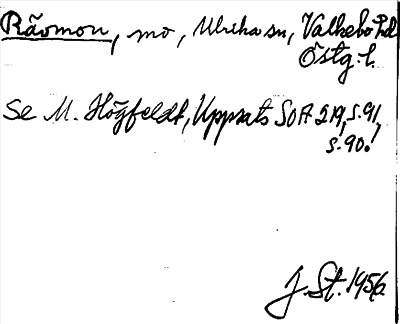 Råomon, mo, Ulrika sn, Valkebo hd
Östg. l.
Se M. Högfeldt, Uppsats SOA 219, s. 91,
s. 90!
J. St. 1956